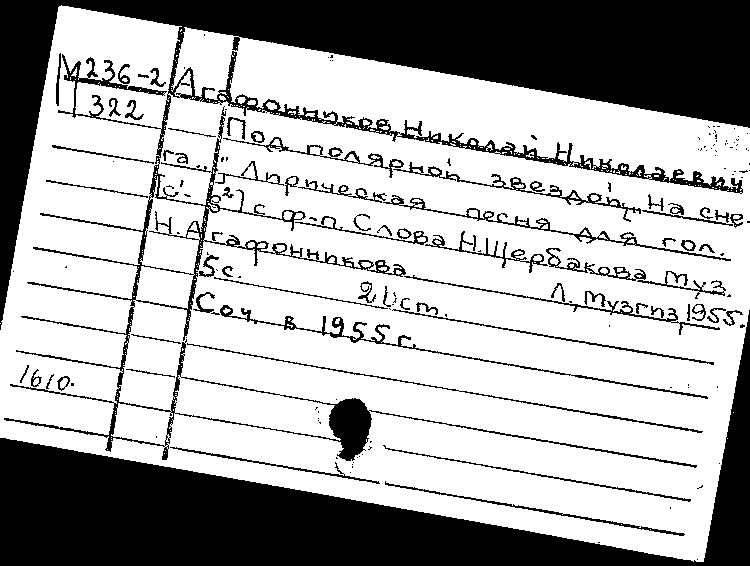 М236-2 Агафонников, Николай Николаевич
322 Под полярной звездой. ["На сне-
га..."] Лирическая песня для гол.
[c¹- g²] с ф-п. Слова Н.Щербакова Муз.
Н.Агафонникова.
Л., Музгиз, 1955.
5с. 21см.
Соч. в 1955г.
1610.